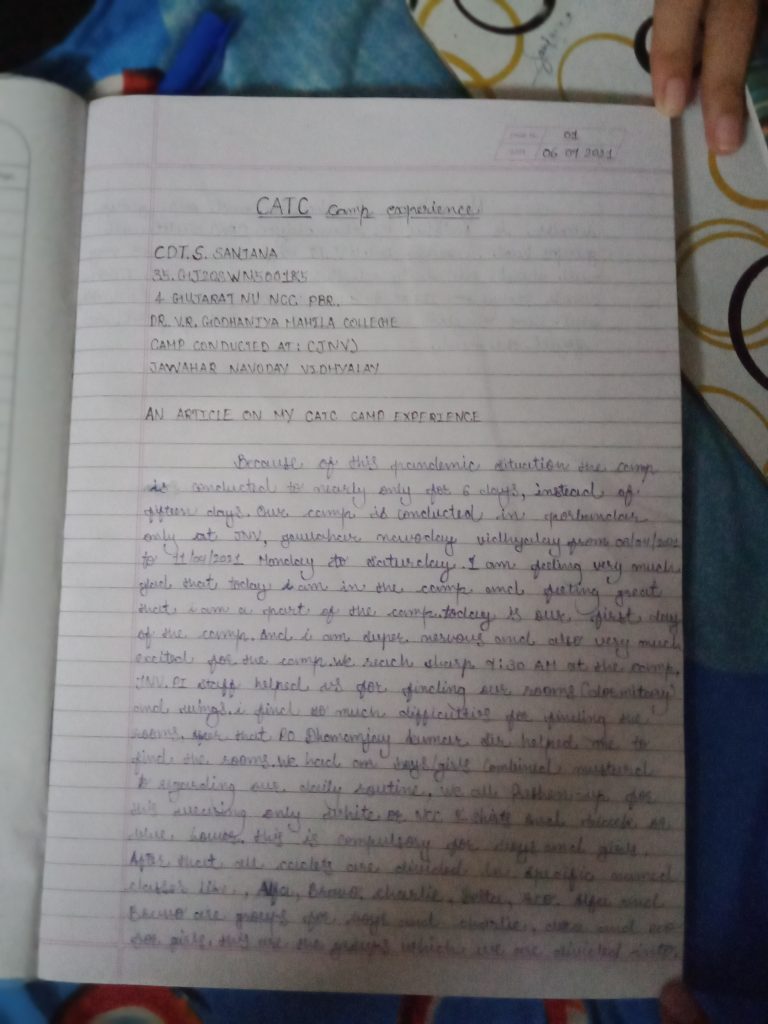 01
06 07 2021
CATC Camp experience
CDT. S. SANJANA
35. GIJ20SWN500185
4 GUJARAT NU NCC PBR.
DR. V.R. GODHANIYA MAHILA COLLEGE
CAMP CONDUCTED AT: (JNV)
JAWAHAR NAVODAY VIDHYALAY
AN ARTICLE ON MY CATC CAMP EXPERIENCE
Because of this pandemic situation the camp
is conducted to nearly only for 6 days, instead of
fifteen days. Our camp is conducted in porbandar
only at JNV, jawahar navoday vidhyalay from
to 11/09/2021 Monday to saturday. I am feeling very much
glad that today i am in the camp and feeling great
that i am a part of the camp. today is our first day
of the camp. And i am super nervous and also very much
excited for the camp. we reach sharp 7:30 AM at the camp,
JNV. PI staff helped us for finding our rooms (dormitory)
and wings. i find so much difficulties for finding the
rooms. that PO Dhananjay kumar sir helped me to
find the rooms. we had an boys/girls combined
regarding our daily routine. we all up for
this wearing only white or NCC and or
this is compulsory for boys and girls.
After that all cadets are divided in specific named
classes like, Alfa, Bravo, charlie, Alfa and
Bravo are groups for boys and charlie, and
for girls. this are the groups which we are divided